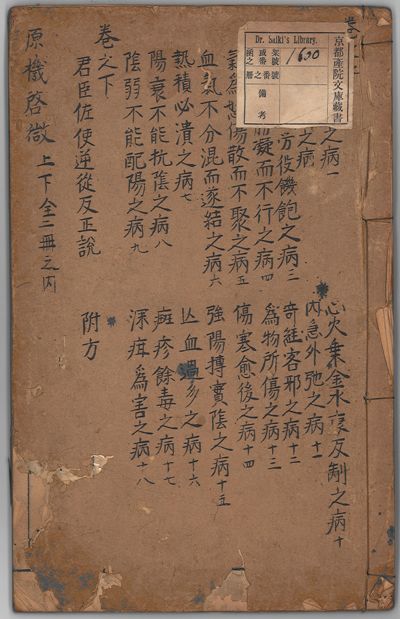 Dr. Saiki's Library.
京都産院文庫蔵書
備考
卷
之病一
之病
役饑飽之病三
而凝而不行之病四
氣為怒傷散而不聚之病五
血氣不分混而遂結之病六
熱積必潰之病七
陽衰不能抗陰之病八
陰弱不能配陽之病九
心火乗金水衰反制之病十
内急外弛之病十一
奇經客邪之病十二
為物所傷之病十三
傷寒愈後之病十四
強陽搏實陰之病十五
亾血過多之病十六
斑疹餘毒之病十七
深疳為害之病十八
卷之下
君臣佐使逆從反正說
附方
原機啓微 上下全二冊之内